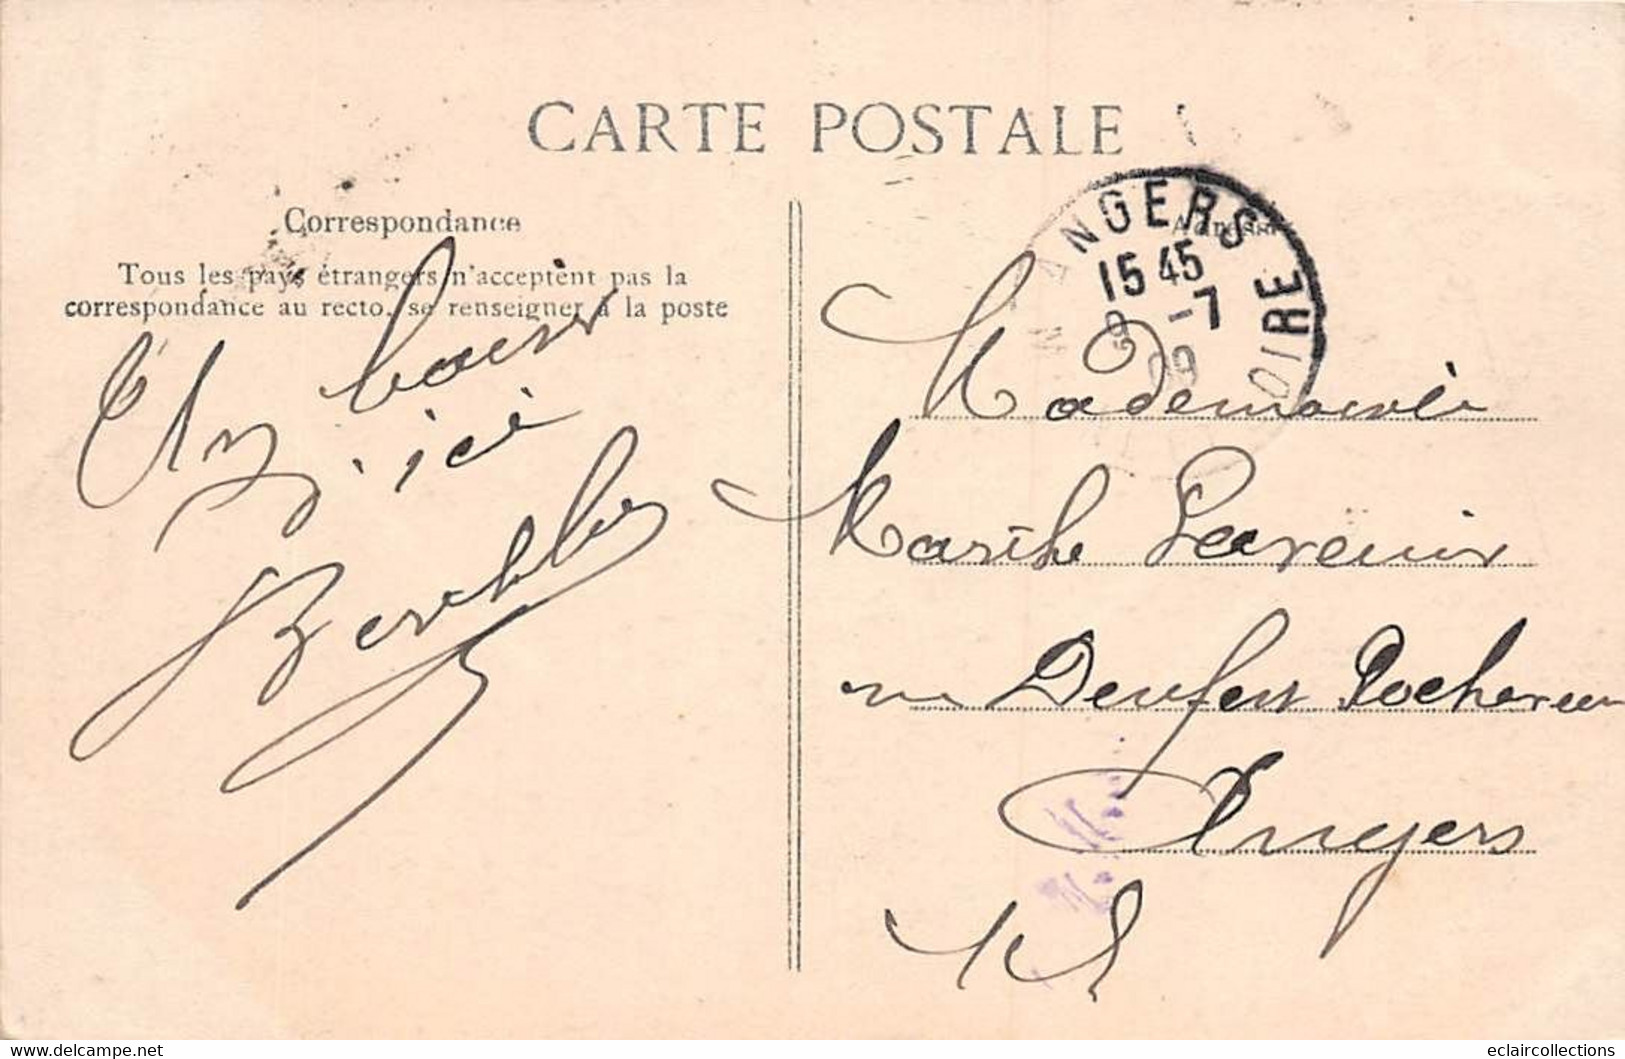 CARTE POSTALE
Correspondance
Tous les pays étrangers n'acceptent pas la
correspondance au recto, se renseigner à la poste
Un baiser
ici
Berthe
Adresse
ANGERS
15 45
9 -7
09
LOIRE
Mademoiselle
Marthe
Denfert Rochereau
Angers
delcampe.net
eclaircollections